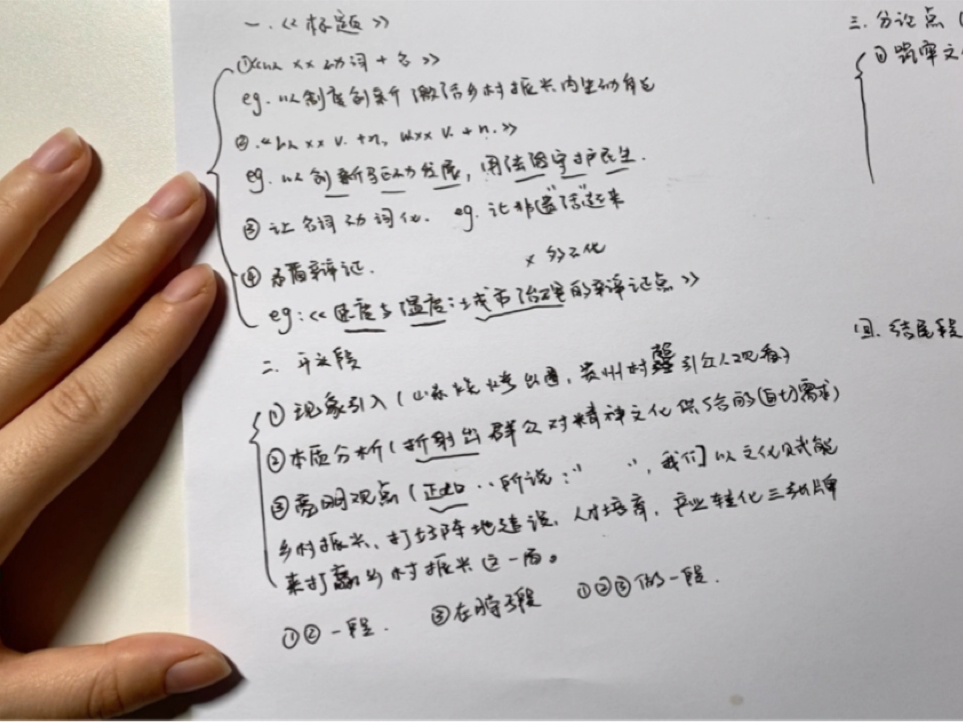 一.《标题》
①《以 xx 动词 + 名》
eg. 以制度创新激活乡村振兴内生动能
②.《以 xx v. + n, 以xx v. + n.》
eg. 以创新驱动发展, 用法治守护民生.
③ 让名词动词化. eg. 让非遗"活"起来
④ 矛盾辩证. x 多元化
eg:《速度与温度:城市治理的辩证点》
二. 开头段
① 现象引入 (山东烧烤出圈, 贵州村 引众人观看)
② 本质分析 (折射出群众对精神文化供给的(自切需求)
③ 亮明观点 (正如..所说:" ", 我们以文化赋能
乡村振兴、打好阵地建设、人才培育、产业转化三张牌
来打赢乡村振兴这一局。
①② 一段. ③在脖子段 ①②③做一段.
三. 分论点 (
① 筑牢文
四. 结尾段